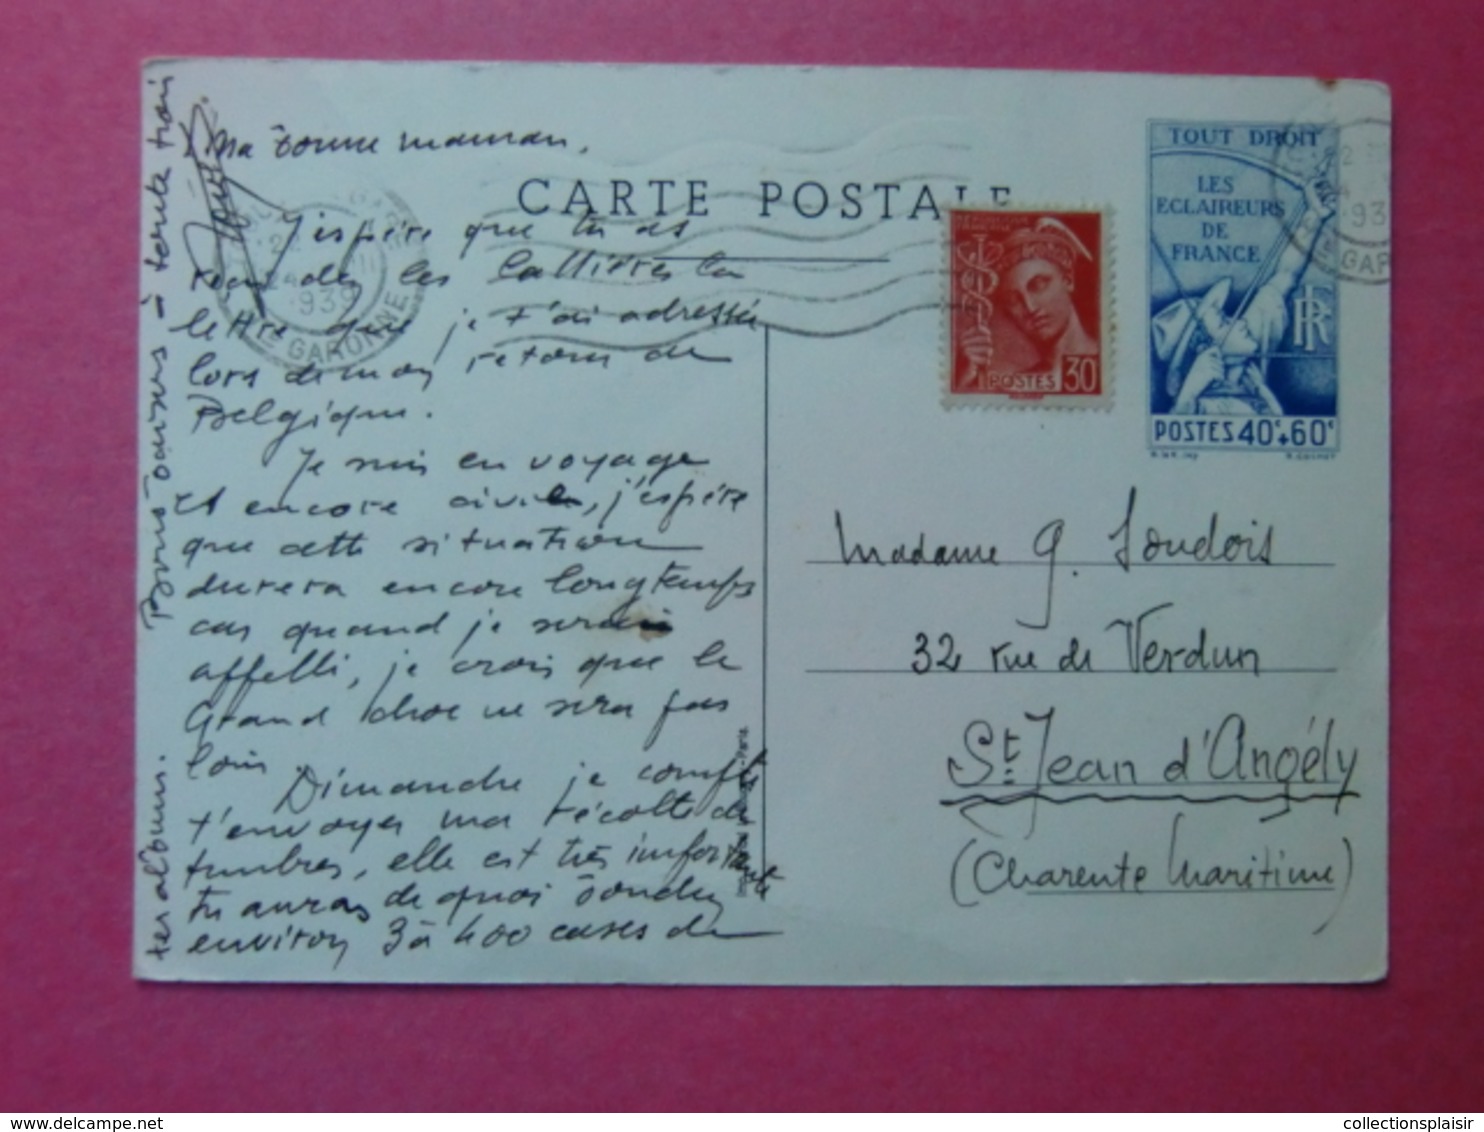 Ma bonne maman,
J'espère que tu as
les Callières la
lettre que je t'ai adressée
lors de mon retour de
Belgique.
Je suis en voyage
et encore civil, j'espère
que cette situation
durera encore longtemps
car quand je serai
affelli, je crois que le
Grand choc ne sera pas
loin.
Dimanche je compte
t'envoyer ma récolte de
timbres, elle est très importante
tu auras de quoi
environ 3 à 400 cases de
tes albums.
Bons baisers à toute trois
CARTE POSTALE
RF
POSTES 30
TOUT DROIT
LES
ECLAIREURS
DE
FRANCE
RF
POSTES 40c+60c
GARONNE
1939
Madame G. Loudois
32 rue de Verdun
St Jean d'Angély
(Charente Maritime)
collectionsplaisir
delcampe.net